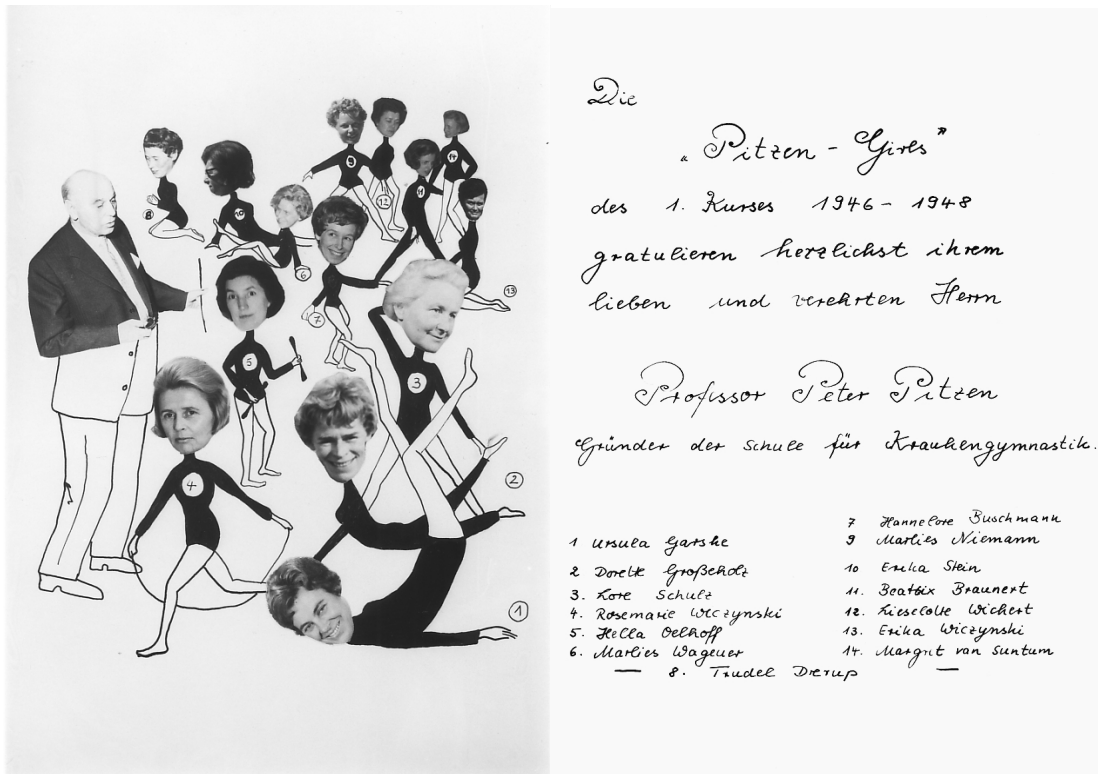 8
10
9
12
11
14
6
7
13
5
3
4
2
1
Die
„Pitzen - Girls"
des 1. Kurses 1946 - 1948
gratulieren herzlichst ihrem
lieben und verehrten Herrn
Professor Peter Pitzen
Gründer der Schule für Krankengymnastik.
1 Ursula Garske
2 Dorette Großeholz
3. Lore Schulz
4. Rosemarie Wiczynski
5. Hella Oelhoff
6. Marlies Wagener
7 Hannelore Buschmann
9 Marlies Niemann
10 Erika Stein
11. Beatrix Braunert
12. Lieselotte Wichert
13. Erika Wiczynski
14. Margrit van Suntum
— 8. Trudel Drerup —